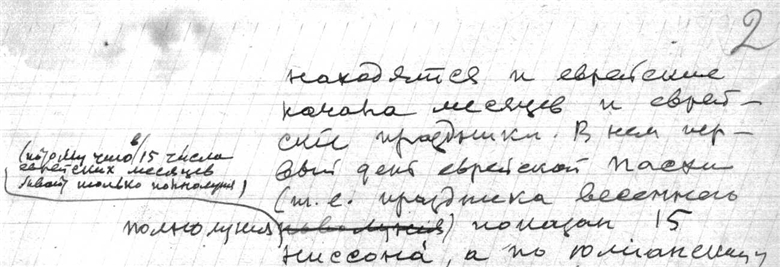 2
находятся и еврейские
начала месяцев и еврей-
ские праздники. В нем пер-
вый день еврейской пасхи
(т.е. праздника весеннего
полнолуния новолуния) показан 15
ниссона, а по юлианскому
(потому что в 15 числа
еврейских месяцев
бывают только полнолуния)